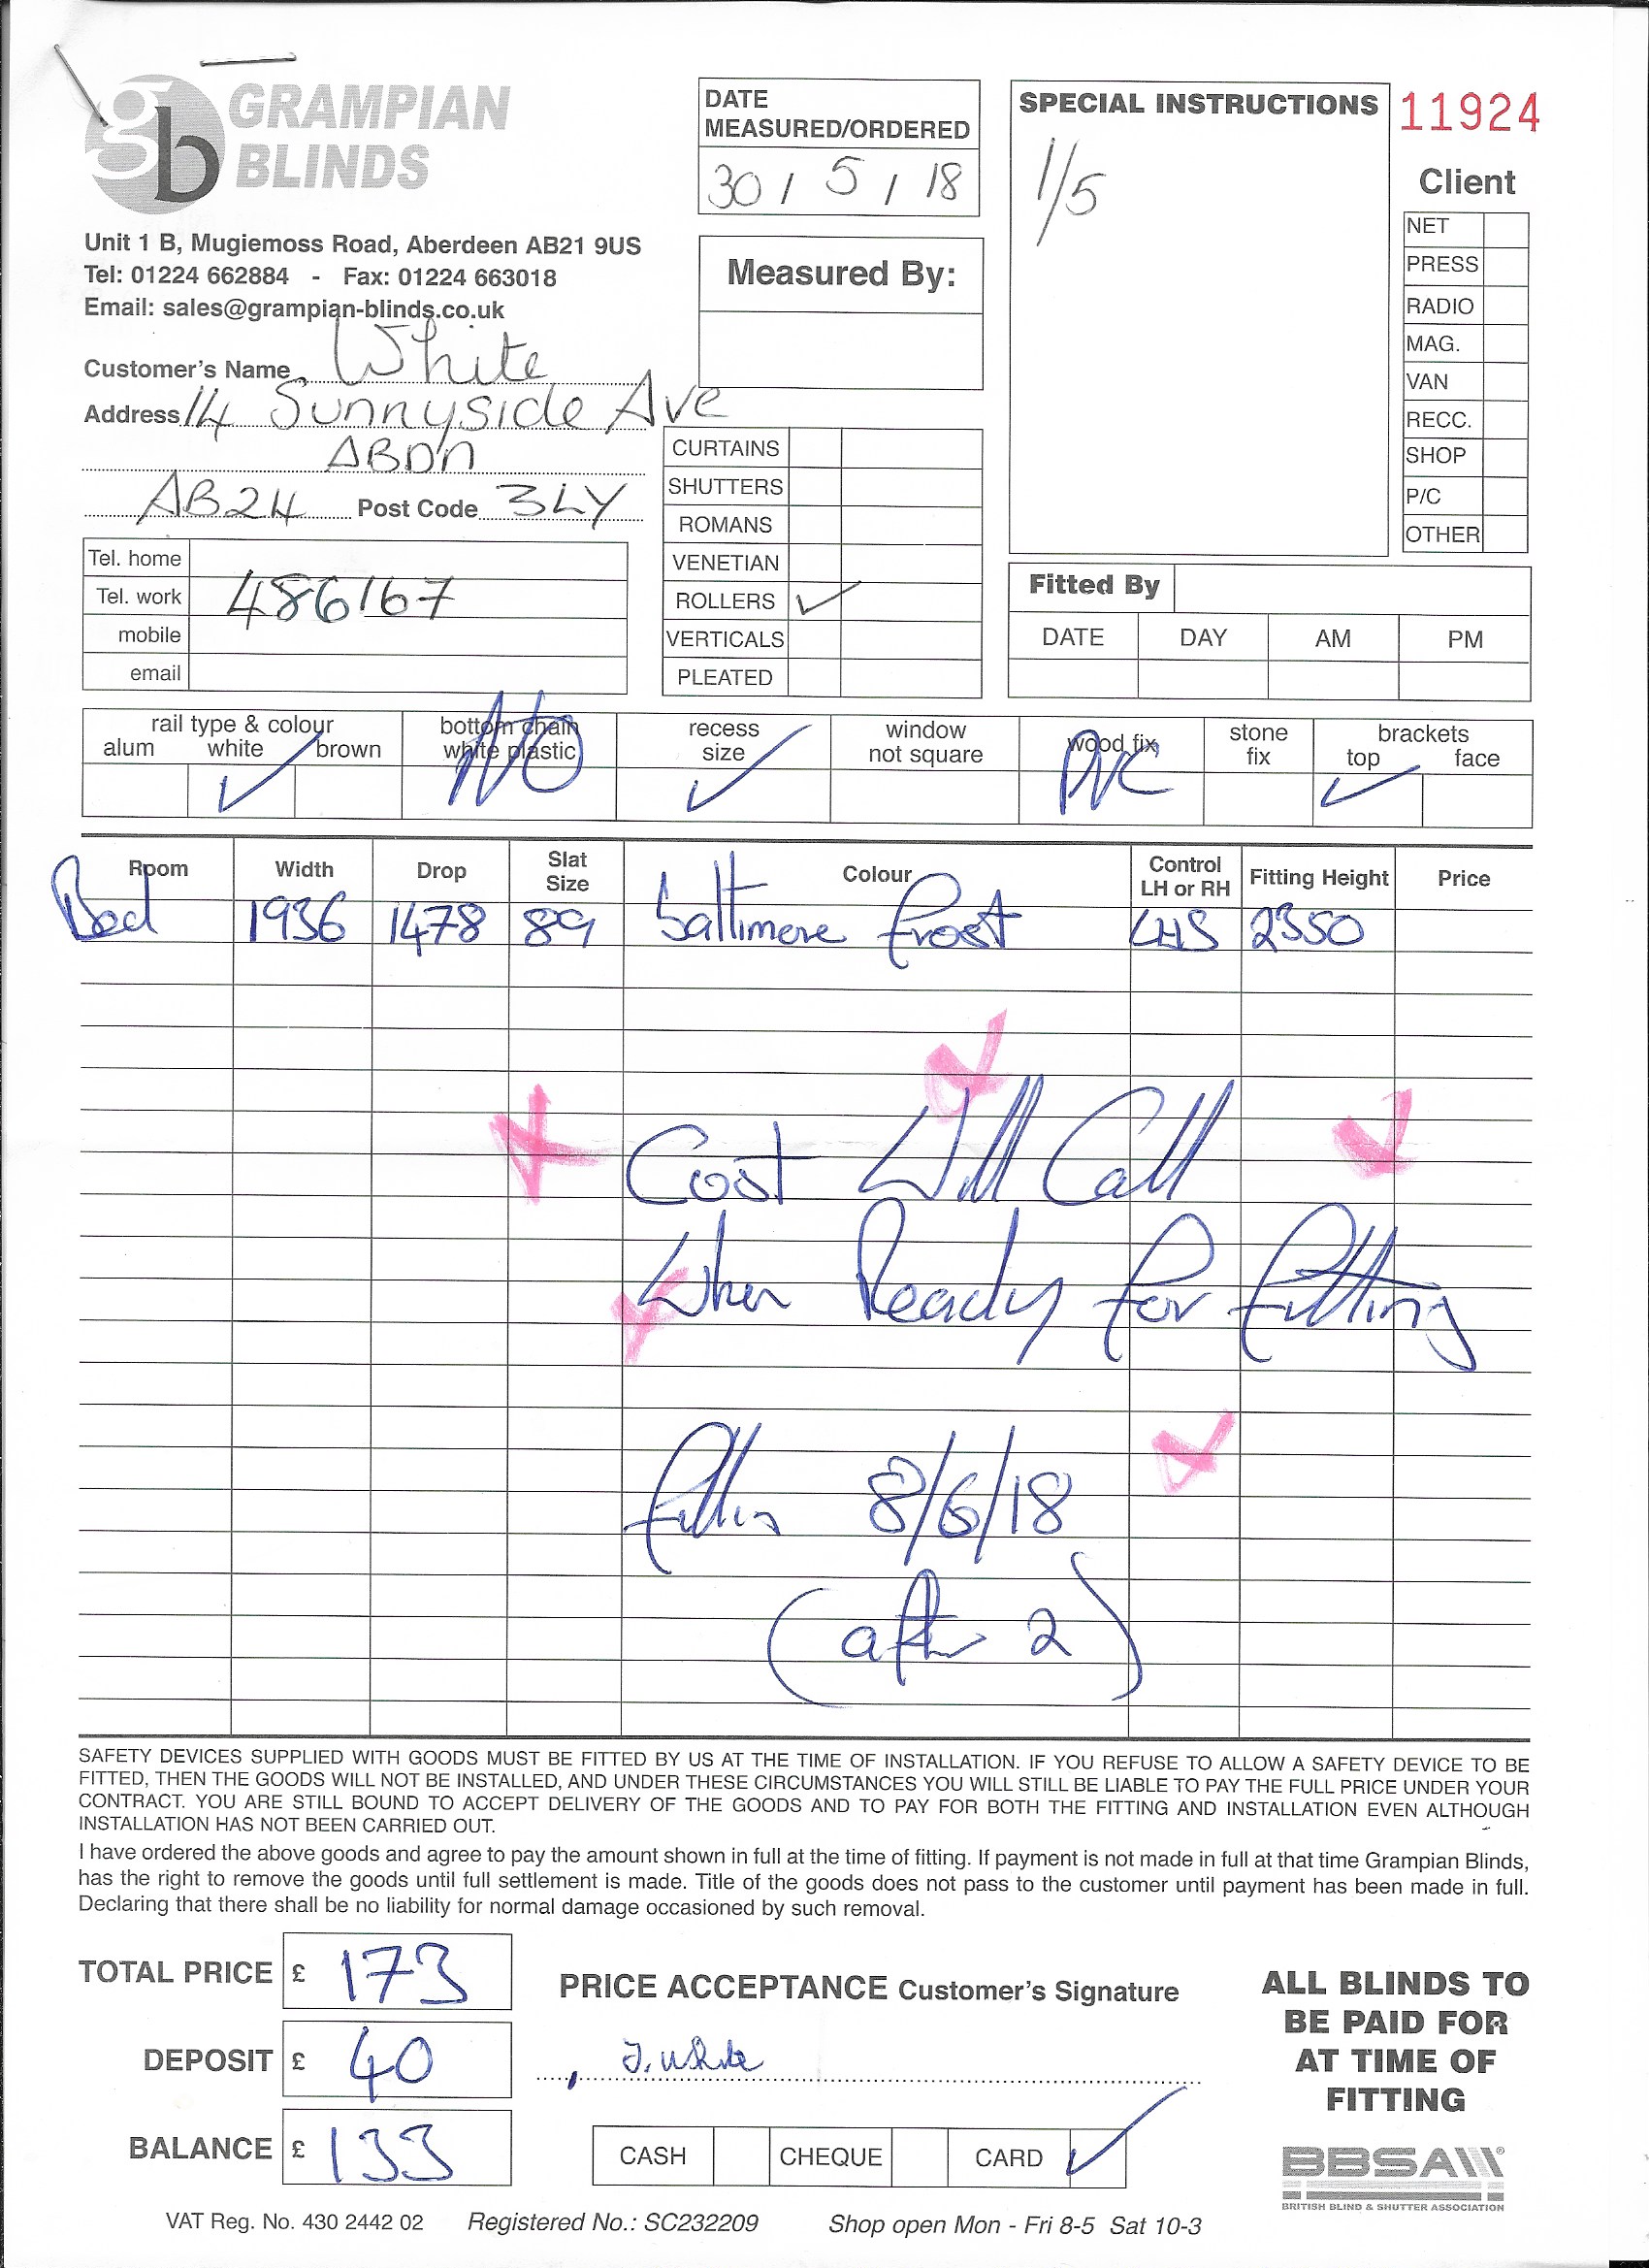 gb GRAMPIAN BLINDS
Unit 1 B, Mugiemoss Road, Aberdeen AB21 9US
Tel: 01224 662884 - Fax: 01224 663018
Email: sales@grampian-blinds.co.uk
Customer's Name White
Address 14 Sunnyside Ave
ABDN
AB24 Post Code 3LY
Tel. home
Tel. work 486167
mobile
email
DATE
MEASURED/ORDERED
30 / 5 / 18
Measured By:
CURTAINS
SHUTTERS
ROMANS
VENETIAN
ROLLERS ✓
VERTICALS
PLEATED
SPECIAL INSTRUCTIONS
1/5
11924
Client
NET
PRESS
RADIO
MAG.
VAN
RECC.
SHOP
P/C
OTHER
Fitted By
DATE DAY AM PM
rail type & colour
alum white brown
✓
bottom chain
white plastic
NO
recess
size
✓
window
not square
wood fix
PVC
stone
fix
brackets
top face
✓
Room Width Drop Slat Size Colour Control LH or RH Fitting Height Price
Bed 1936 1478 89 baltimore frost LHS 2350
Cost Will Call
When Ready for fitting
8/6/18
(after 2)
SAFETY DEVICES SUPPLIED WITH GOODS MUST BE FITTED BY US AT THE TIME OF INSTALLATION. IF YOU REFUSE TO ALLOW A SAFETY DEVICE TO BE
FITTED, THEN THE GOODS WILL NOT BE INSTALLED, AND UNDER THESE CIRCUMSTANCES YOU WILL STILL BE LIABLE TO PAY THE FULL PRICE UNDER YOUR
CONTRACT. YOU ARE STILL BOUND TO ACCEPT DELIVERY OF THE GOODS AND TO PAY FOR BOTH THE FITTING AND INSTALLATION EVEN ALTHOUGH
INSTALLATION HAS NOT BEEN CARRIED OUT.
I have ordered the above goods and agree to pay the amount shown in full at the time of fitting. If payment is not made in full at that time Grampian Blinds,
has the right to remove the goods until full settlement is made. Title of the goods does not pass to the customer until payment has been made in full.
Declaring that there shall be no liability for normal damage occasioned by such removal.
TOTAL PRICE £ 173
DEPOSIT £ 40
BALANCE £ 133
PRICE ACCEPTANCE Customer's Signature
J. White
CASH CHEQUE CARD ✓
ALL BLINDS TO
BE PAID FOR
AT TIME OF
FITTING
BBSA
BRITISH BLIND & SHUTTER ASSOCIATION
VAT Reg. No. 430 2442 02 Registered No.: SC232209 Shop open Mon - Fri 8-5 Sat 10-3